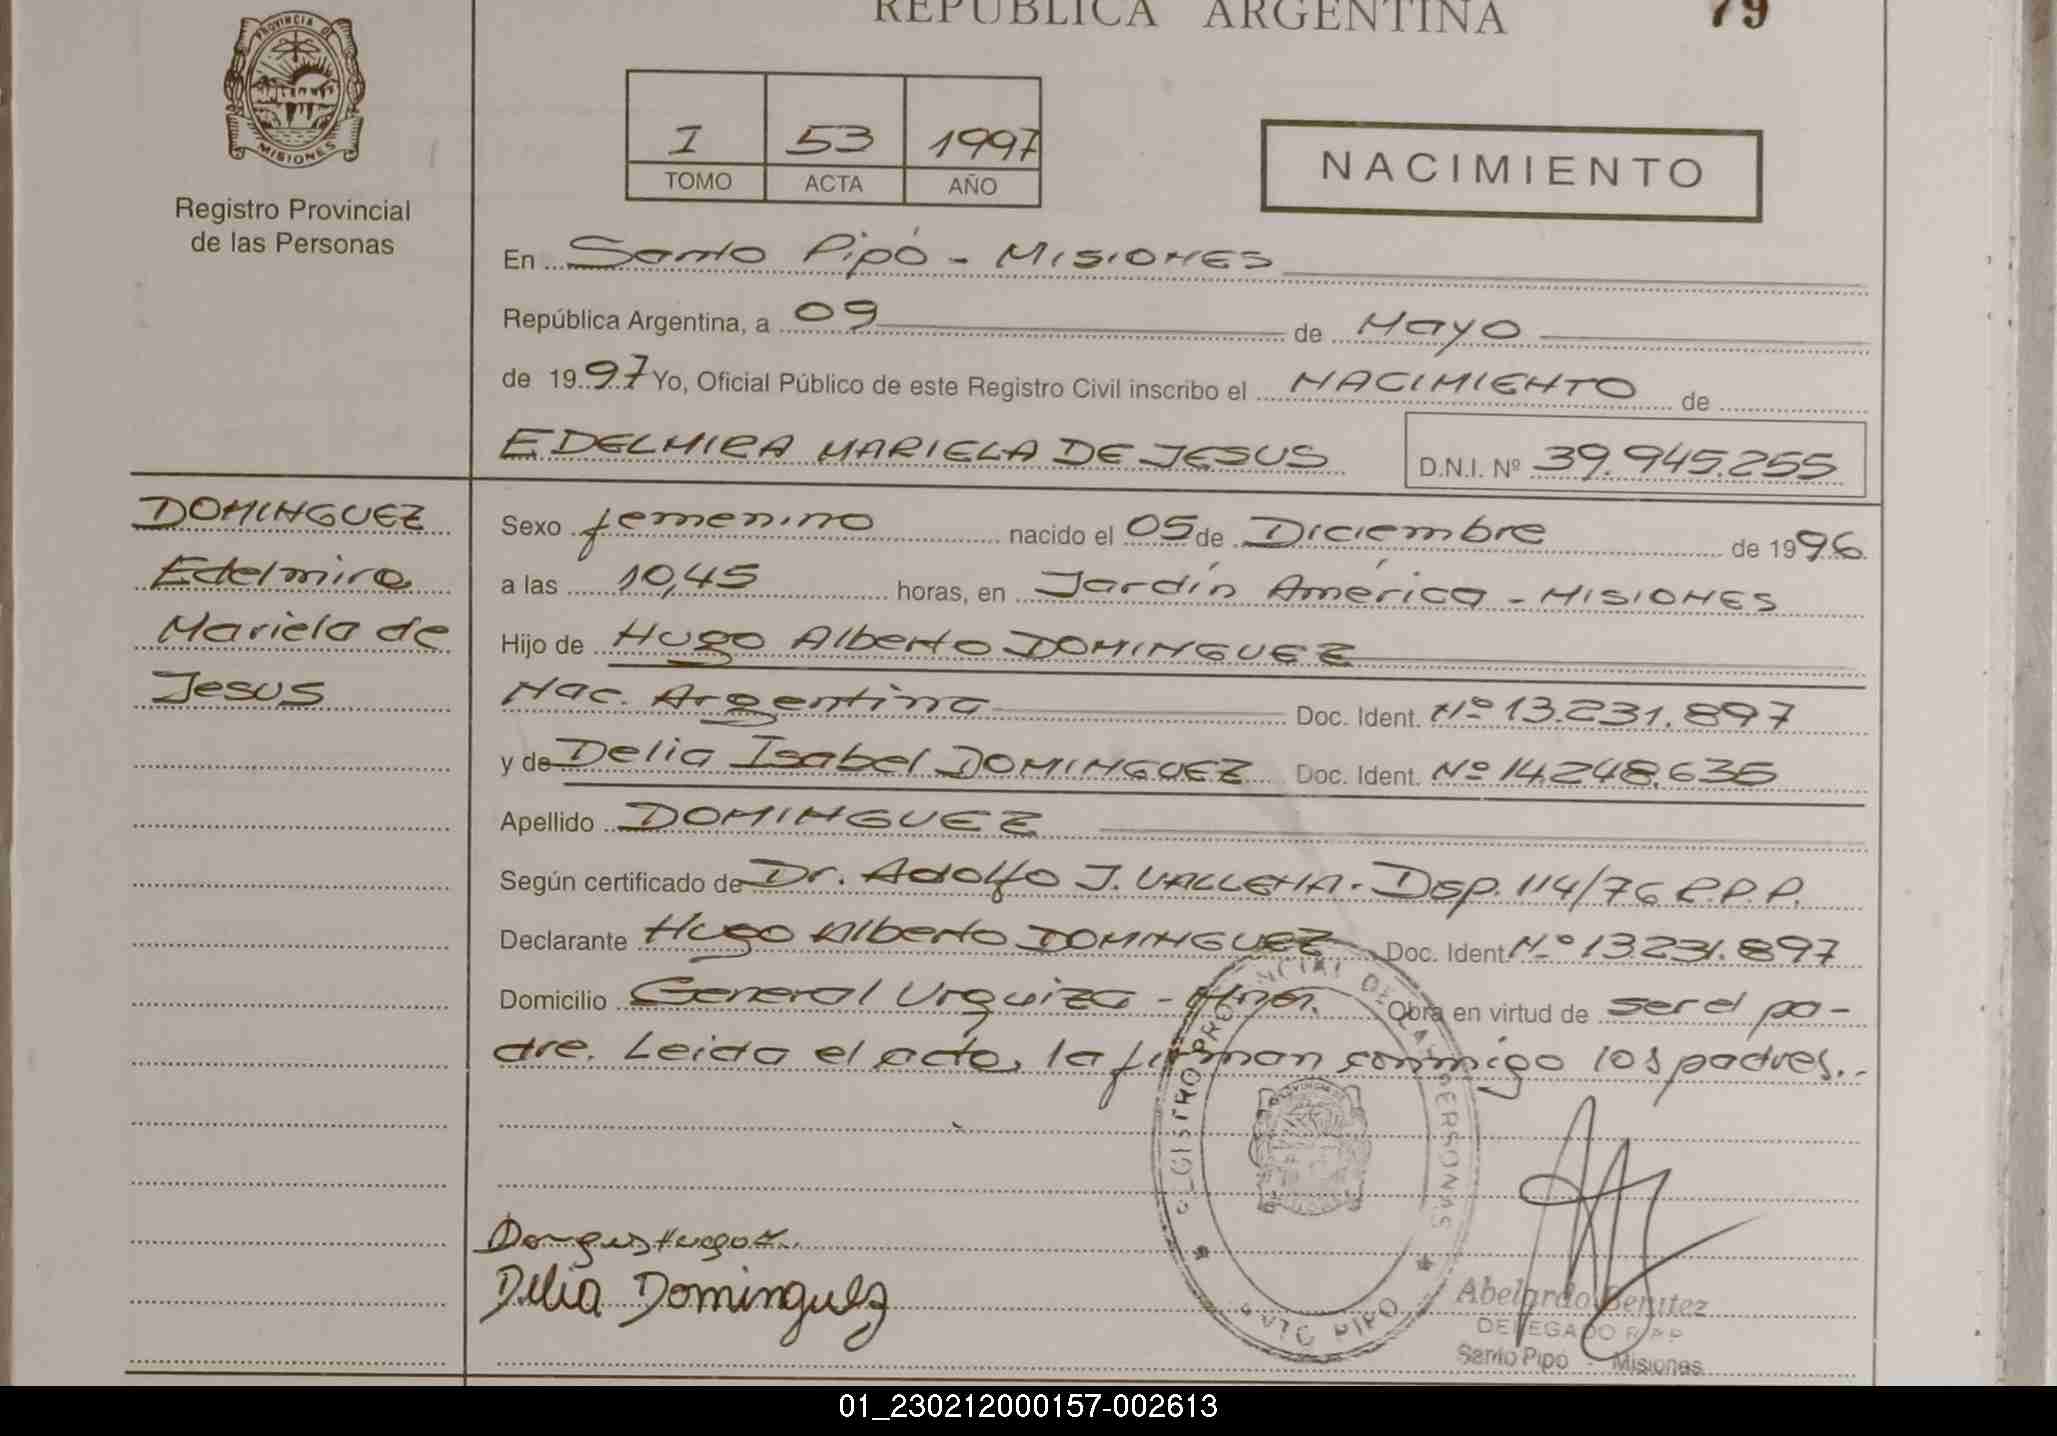 REPUBLICA ARGENTINA 79
PROVINCIA DE
MISIONES
Registro Provincial
de las Personas
I 53 1997
TOMO ACTA AÑO
NACIMIENTO
En Santo Pipó - MISIONES
República Argentina, a 09 de Mayo
de 1997 Yo, Oficial Público de este Registro Civil inscribo el NACIMIENTO de
EDELMIRA MARIELA DE JESUS D.N.I. Nº 39.945.255
DOMINGUEZ
Edelmira
Mariela de
Jesus
Sexo femenino nacido el 05 de Diciembre de 1996
a las 10,45 horas, en Jardín América - MISIONES
Hijo de Hugo Alberto DOMINGUEZ
Nac. Argentina Doc. Ident. Nº 13.231.897
y de Delia Isabel DOMINGUEZ Doc. Ident. Nº 14.248.636
Apellido DOMINGUEZ
Según certificado de Dr. Adolfo J. VALLEHA. Dsp. 114/76 R.P.P.
Declarante Hugo Alberto DOMINGUEZ Doc. Ident. Nº 13.231.897
Domicilio General Urquiza - Obra en virtud de ser el pa-
dre. Leida el acta, la firman conmigo los padres..
REGISTRO PROVINCIAL DE LAS PERSONAS
SANTO PIPO
Delia Dominguez
Abelardo Benitez
DELEGADO R.P.P
Santo Pipo - Misiones
01_230212000157-002613